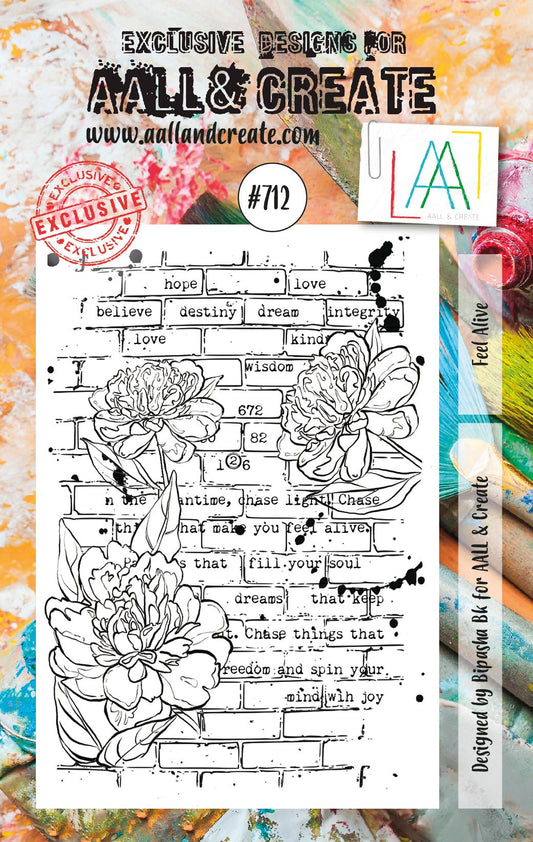 EXCLUSIVE DESIGNS FOR
AALL & CREATE
www.aallandcreate.com
AALL & CREATE
EXCLUSIVE
EXCLUSIVE
EXCLUSIVE
#712
hope love
believe destiny dream integrity
love kind
wisdom
672
82
1 2 6
n the antime, chase light! Chase
thi hat make you feel alive.
Pa s that fill your soul
dreams that keep
t. Chase things that
reedom and spin your
mind wih joy
Feel Alive
Designed by Bipasha Bk for AALL & Create